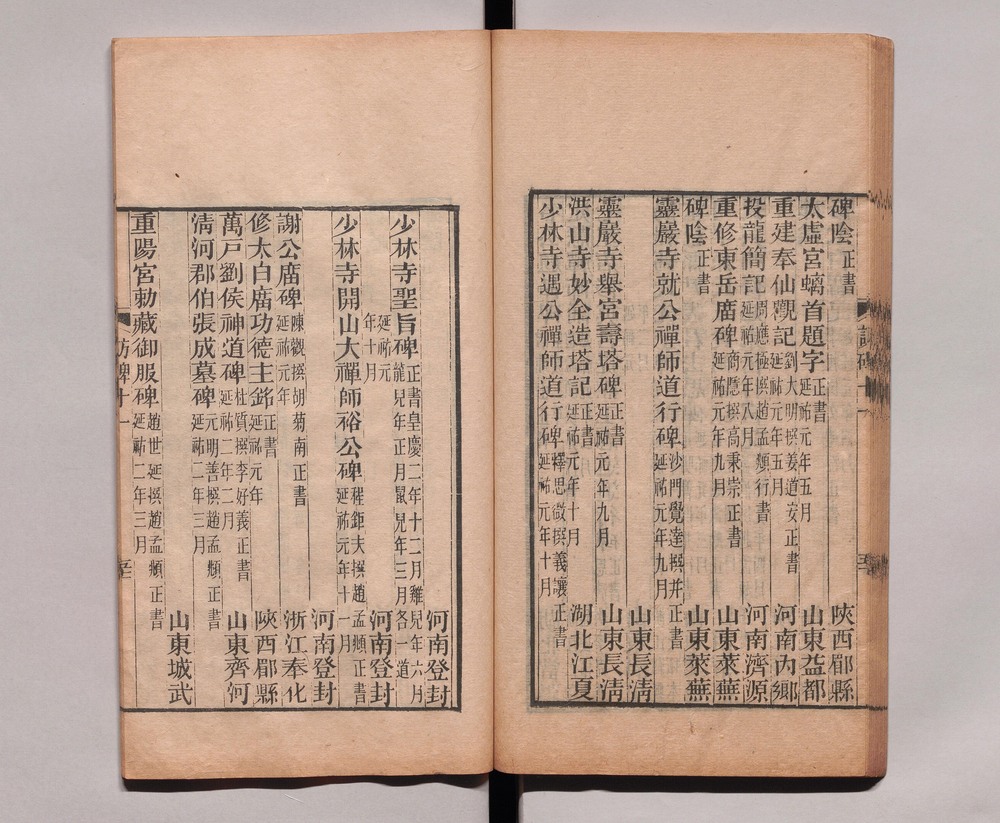 碑陰 正書 陝西郿縣
太虛宮螭首題字 正書 延祐元年五月 山東益都
重建奉仙觀記 劉大明撰姜道安正書 延祐元年五月 河南內鄉
投龍簡記 周應極撰趙孟頫行書 延祐元年八月 河南濟源
重修東岳廟碑 商隱撰高秉崇正書 延祐元年九月 山東萊蕪
碑陰 正書 山東萊蕪
靈巖寺就公禪師道行碑 沙門覺達撰并正書 延祐元年九月
山東長淸
靈巖寺舉宮壽塔碑 正書 延祐元年九月 山東長淸
洪山寺妙全造塔記 正書 延祐元年十月 湖北江夏
少林寺遇公禪師道行碑 釋思微撰義讓正書 延祐元年十月
河南登封
少林寺聖旨碑 正書皇慶二年十二月雞兒年六月 龍兒年正月鼠兒年三月各一道 延祐元年十月
河南登封
少林寺開山大禪師裕公碑 程鉅夫撰趙孟頫正書 延祐元年十一月
河南登封
謝公廟碑 陳觀撰胡菊南正書 延祐元年 浙江奉化
修太白廟功德主銘 正書 延祐元年 陝西郿縣
萬戶劉侯神道碑 杜質撰李好義正書 延祐二年二月 山東齊河
淸河郡伯張成墓碑 元明善撰趙孟頫正書 延祐二年三月
山東城武
重陽宮勅藏御服碑 趙世延撰趙孟頫正書 延祐二年三月
訪碑十一